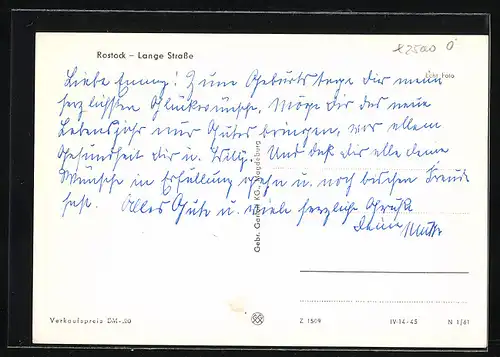 Rostock – Lange Straße
x2500 Ö
Foto
Liebe Emmy! Zum Geburtstage Dir meine
herzlichsten Glückwünsche. Möge Dir das neue
Lebensjahr nur Gutes bringen, vor allem
Gesundheit Dir u. Willy. Und daß Dir alle deine
Wünsche in Erfüllung gehn u. noch bischen Freude
hast. Alles Gute u. viele herzliche Grüße
Deine Mutti
Gebr. Garloff KG., Magdeburg
Verkaufspreis DM -.20
Z 1509
IV-14-45
N 1/61